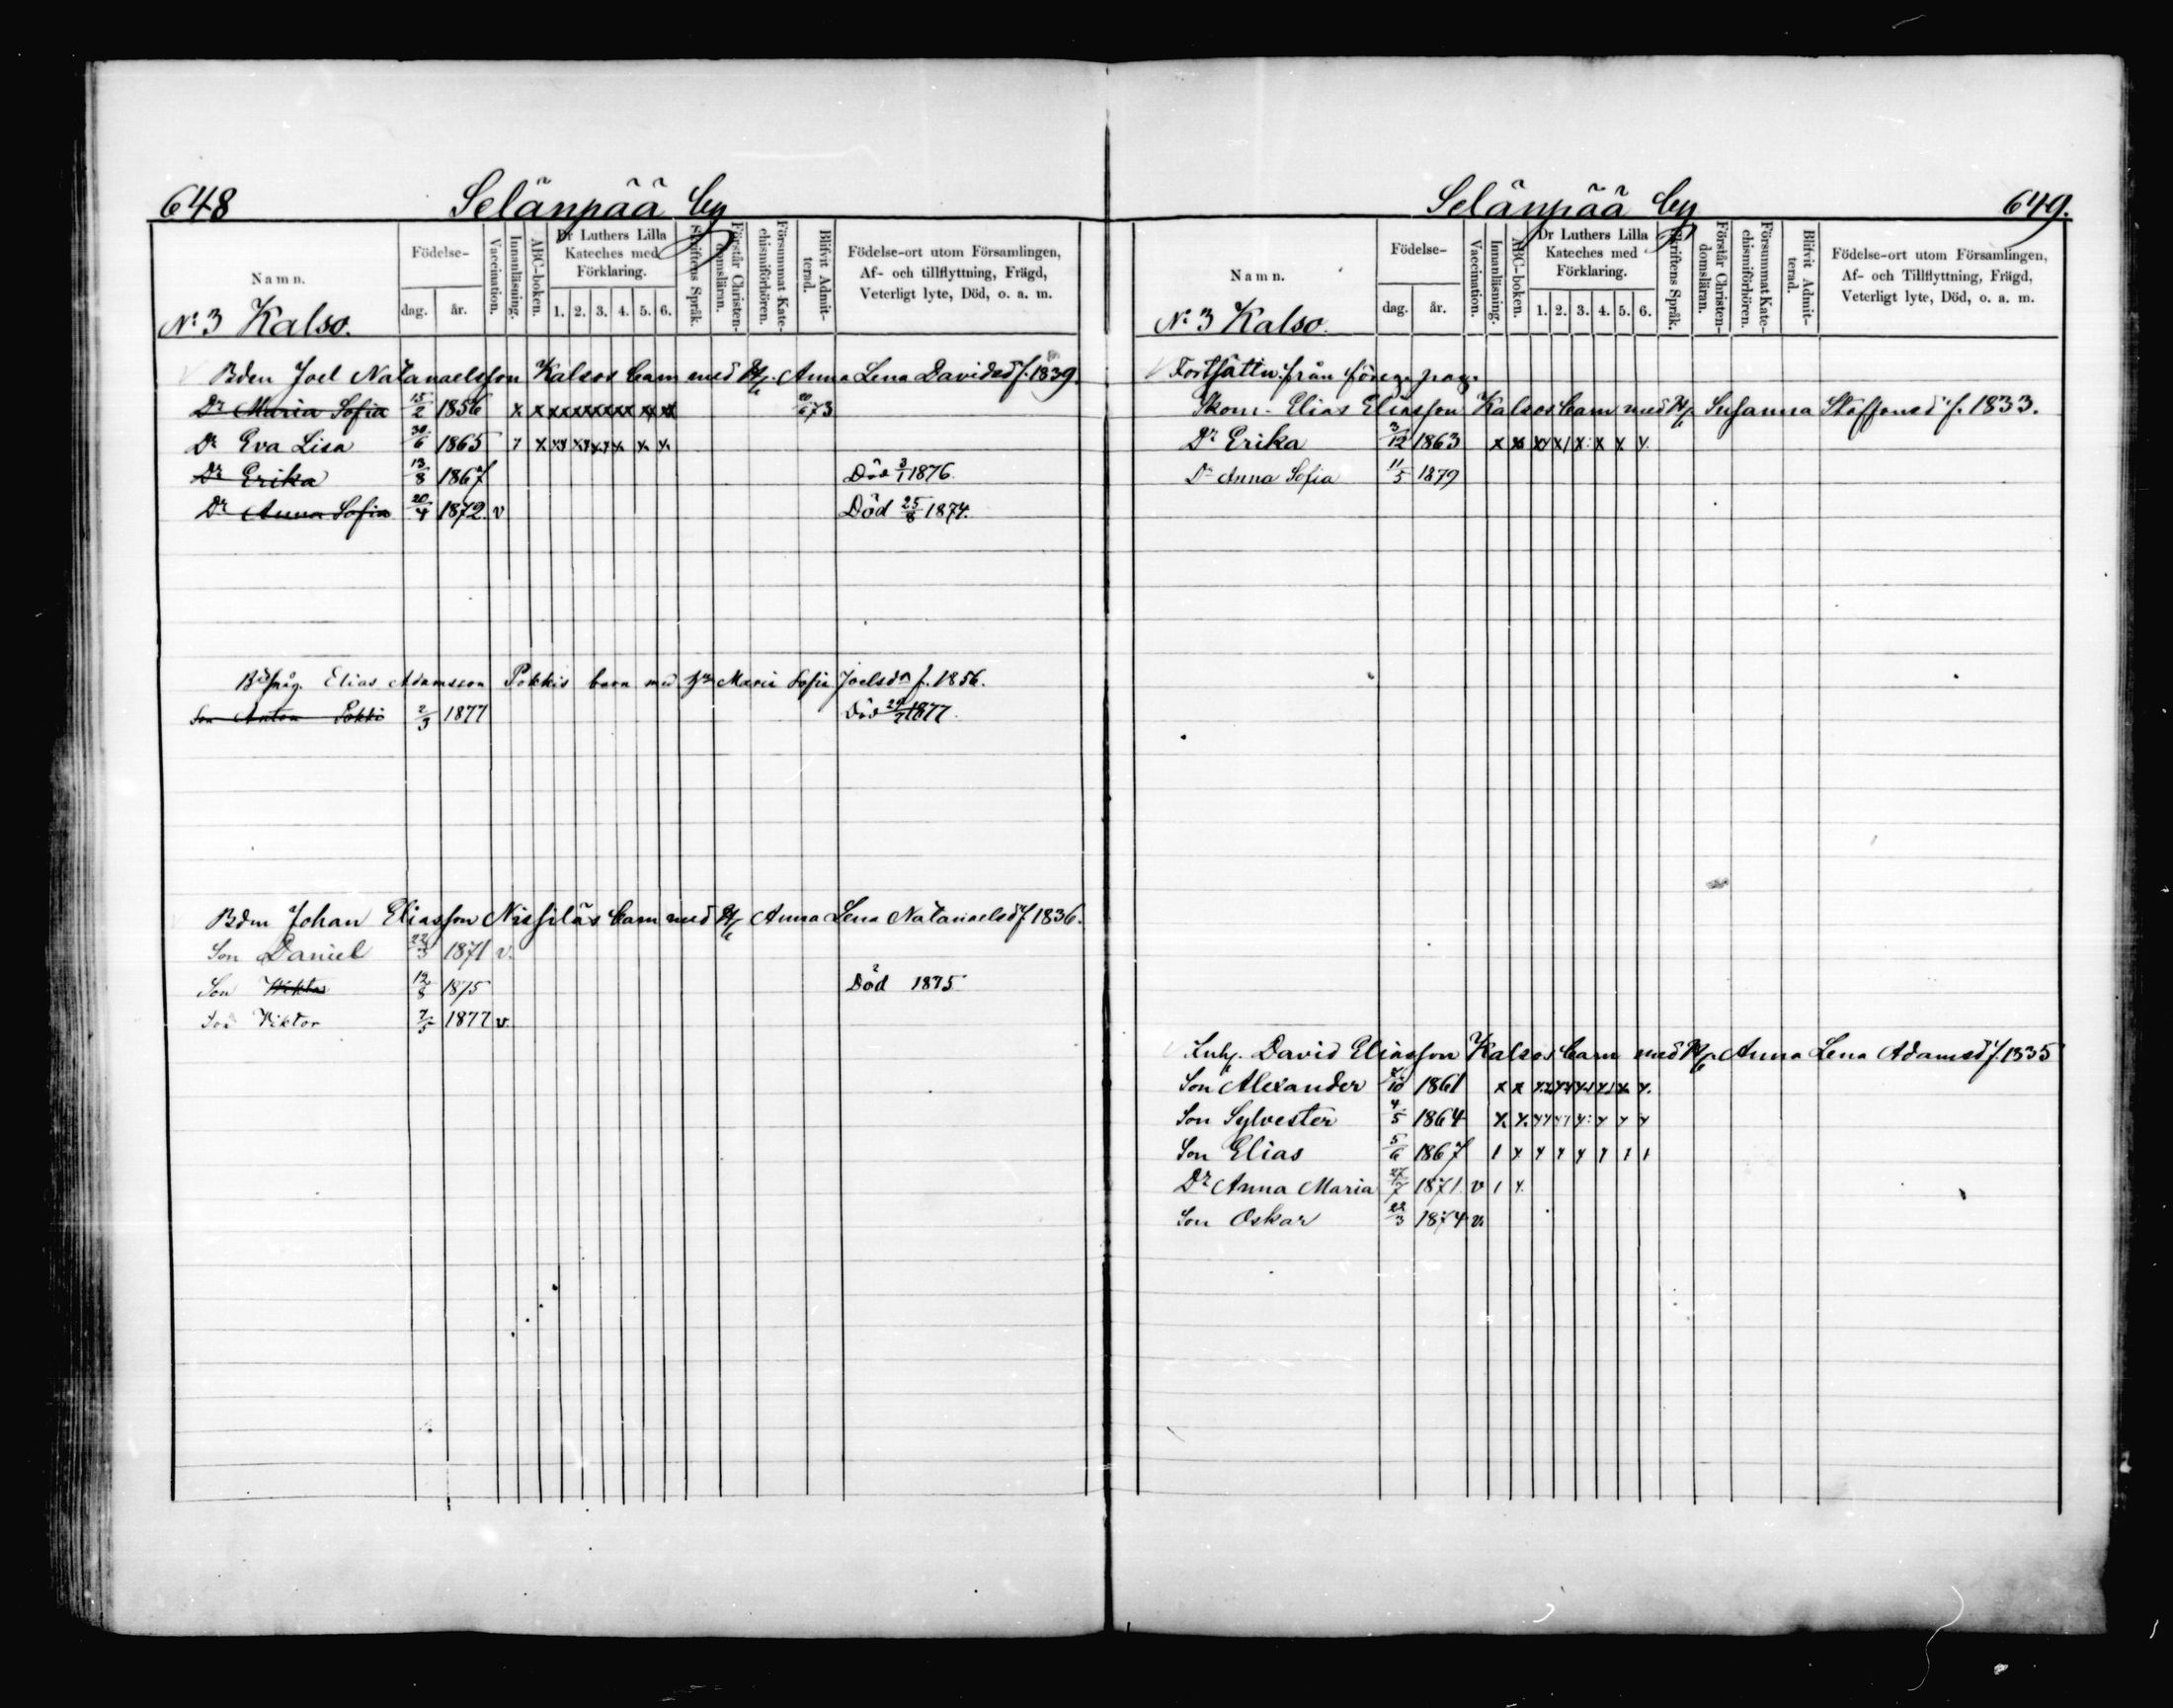 648 Selänpää by
Namn. Födelse- dag. år. Vaccination. Innanläsning. ABC-boken. Dr Luthers Lilla Kateches med Förklaring. 1. 2. 3. 4. 5. 6. Skriftens Språk. Förstår Christendomsläran. Försummat Katechismiförhören. Blifvit Admitterad. Födelse-ort utom Församlingen, Af- och tillflyttning, Frägd, Veterligt lyte, Död, o. a. m.
No 3 Kalso.
Bden Joel Natanaelsson Kalsos barn med H/u Anna Lena Davidsd f. 1839.
Dr Maria Sofia 15/2 1856 x x xx xx xx xx xx xx 20/6 73
Dr Eva Lisa 30/6 1865 x x xx xx xx x x x
Dr Erika 13/8 1867 Död 3/1 1876.
Dr Anna Sofia 20/4 1872. v Död 25/8 1874.
Elias Adamsson Pokkis barn med Maria Sofia Joelsdr f. 1856.
Son Anton Pokki 2/3 1877 Död 1877.
Bdm Johan Eliasson Nissiläs barn med H/u Anna Lena Natanaelsd f 1836.
Son Daniel 22/3 1871 v.
Son Viktor 12/8 1875 Död 1875
Son Viktor 7/5 1877 v.
Selänpää by 649.
Namn. Födelse- dag. år. Vaccination. Innanläsning. ABC-boken. Dr Luthers Lilla Kateches med Förklaring. 1. 2. 3. 4. 5. 6. Skriftens Språk. Förstår Christendomsläran. Försummat Katechismiförhören. Blifvit Admitterad. Födelse-ort utom Församlingen, Af- och Tillflyttning, Frägd, Veterligt lyte, Död, o. a. m.
No 3 Kalso.
Fortsättn. från föreg. pag.
Skom. Elias Eliasson Kalsos barn med H/u Susanna Staffansd f. 1833.
Dr Erika 3/12 1863 x x xx x/ x: x x x.
Dr Anna Sofia 11/5 1879
Inh. David Eliasson Kalsos barn med H/u Anna Lena Adamsd f. 1835
Son Alexander 7/10 1861 x x xx xx xx xx x x.
Son Sylvester 4/5 1864 x. x. xx x/ x: x x x
Son Elias 5/6 1867 / x x x x x / /
Dr Anna Maria 27/7 1871. v / x.
Son Oskar 22/3 1874 v.